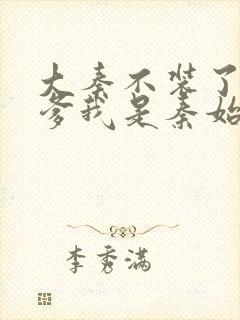 大秦不装了
爹我是秦始
李秀满